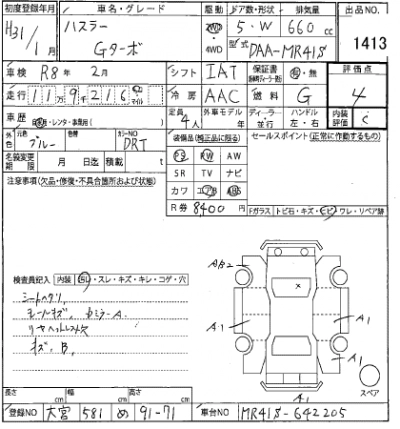 初度登録年月 車名・グレード 駆動 ドア数・形状 排気量 出品NO.
H31/1月 ハスラー Gターボ 2WD ・ 4WD 5・W 660 cc 1413
型式 DAA-MR41S
車検 R8年 2月 シフト IAT 保証書 有・無 評価点
走行 119,216 km マイル 冷房 AAC 燃料 G 4
車歴 自家用・レンタ・事業用( ) 定員 4人 外車モデル 年 ディーラー・並行 ハンドル 左・右 内装評価 C
外色 元色 ブルー カラーNO DRT 装備品(純正品に限る) セールスポイント(正常に作動するもの)
名義変更期限 月 日迄 積載 t PS PW AW
注意事項(欠品・修復・不具合箇所および状態) SR TV ナビ
カワ エアB ABS
R券 8400円 Fガラス トビ石・キズ・ヒビ・ワレ・リペア跡
検査員記入 内装 スレ・キズ・キレ・コゲ・穴
シートヘタリ
モールキズ、
リヤヘッドレスト穴
キズB、
AB2
A1
A1
A1
A1
スペア
長さ cm 幅 cm 高さ cm
登録NO 大宮 581 め 91-71 車台NO MR41S-642205